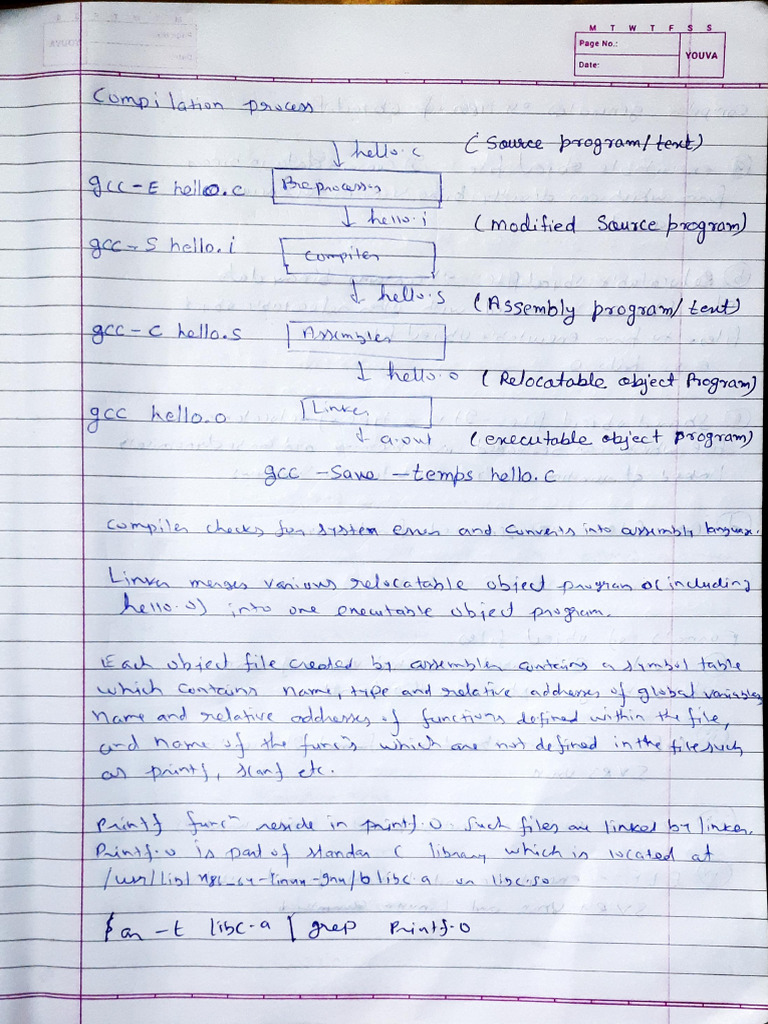 M T W T F S S
Page No.:
Date:
YOUVA
Compilation process
↓ hello.c (Source program/text)
gcc -E hello.c Preprocessor
↓ hello.i (Modified Source program)
gcc -S hello.i Compiler
↓ hello.s (Assembly program/text)
gcc -C hello.s Assembler
↓ hello.o (Relocatable object Program)
gcc hello.o Linker
↓ a.out (executable object program)
gcc -Save -temps hello.c
Compiler checks for system error and converts into assembly language.
Linker merges various relocatable object program (including
hello.o) into one executable object program.
Each object file created by assembler contains a symbol table
which contains name, type and relative addresses of global variables,
name and relative addresses of functions defined within the file,
and name of the funcns which are not defined in the file such
as printf, scanf etc.
Printf funcn reside in printf.o. Such files are linked by linker.
Printf.o is part of standar C library which is located at
/usr/lib/x86_64-linux-gnu/ libc.a or libc.so
$ ar -t libc.a | grep Printf.o